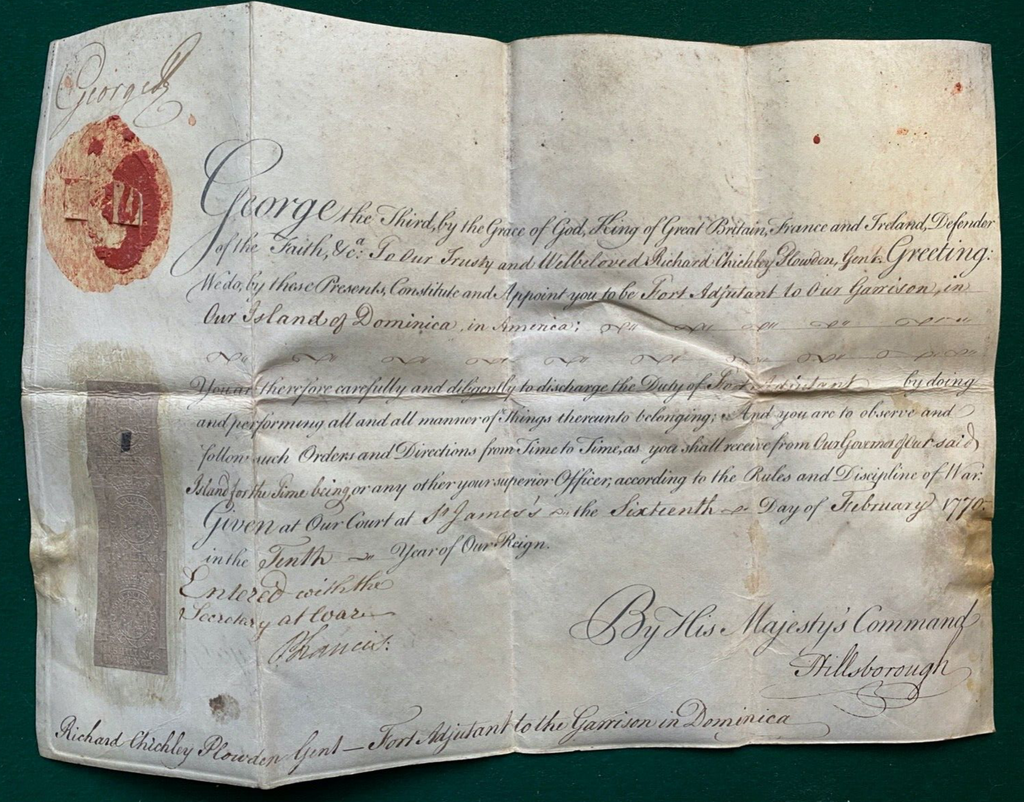 George R
George the Third, by the Grace of God, King of Great Britain, France and Ireland, Defender
of the Faith, &c.a To Our Trusty and Welbeloved Richard Chichley Plowden, Gent. Greeting:
We do, by these Presents, Constitute and Appoint you to be Fort Adjutant to Our Garrison, in
Our Island of Dominica, in America;
You are therefore carefully and diligently to discharge the Duty of Fort Adjutant by doing
and performing all and all manner of Things thereunto belonging; And you are to observe and
follow such Orders and Directions from Time to Time, as you shall receive from Our Governor of Our said
Island for the Time being, or any other your superior Officer, according to the Rules and Discipline of War.
Given at Our Court at St James's the Sixteenth Day of February 1770.
in the Tenth Year of Our Reign.
Entered with the
Secretary at War
P Francis.
By His Majesty's Command
Hillsborough
Richard Chichley Plowden Gent — Fort Adjutant to the Garrison in Dominica